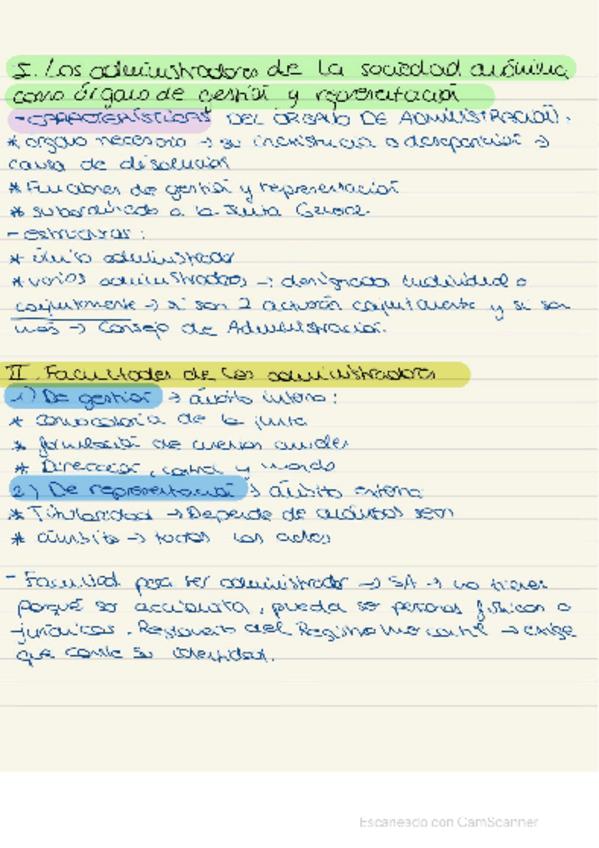 I. Los administradores de la sociedad anónima
como órgano de gestión y representación
- CARACTERÍSTICAS DEL ÓRGANO DE ADMINISTRACIÓN.
* órgano necesario → su inexistencia o desaparición →
causa de disolución
* Funciones de gestión y representación
* subordinado a la Junta General
- estructuras:
* único administrador
* varios administradores → designados individual o
conjuntamente → si son 2 actuarán conjuntamente y si son
más → Consejo de Administración.
II. Facultades de los administradores
1) De gestión → ámbito interno:
* Convocatoria de la junta
* formulación de cuentas anuales
* Dirección, control y mando
2) De representación → ámbito externo
* Titularidad → Depende de cuántos sean
* ámbito → todos los actos
- Facultad para ser administrador → SA → no tienen
porqué ser accionista, pueden ser personas físicas o
jurídicas. Reglamento del Registro Mercantil → exige
que conste su identidad.
Escaneado con CamScanner